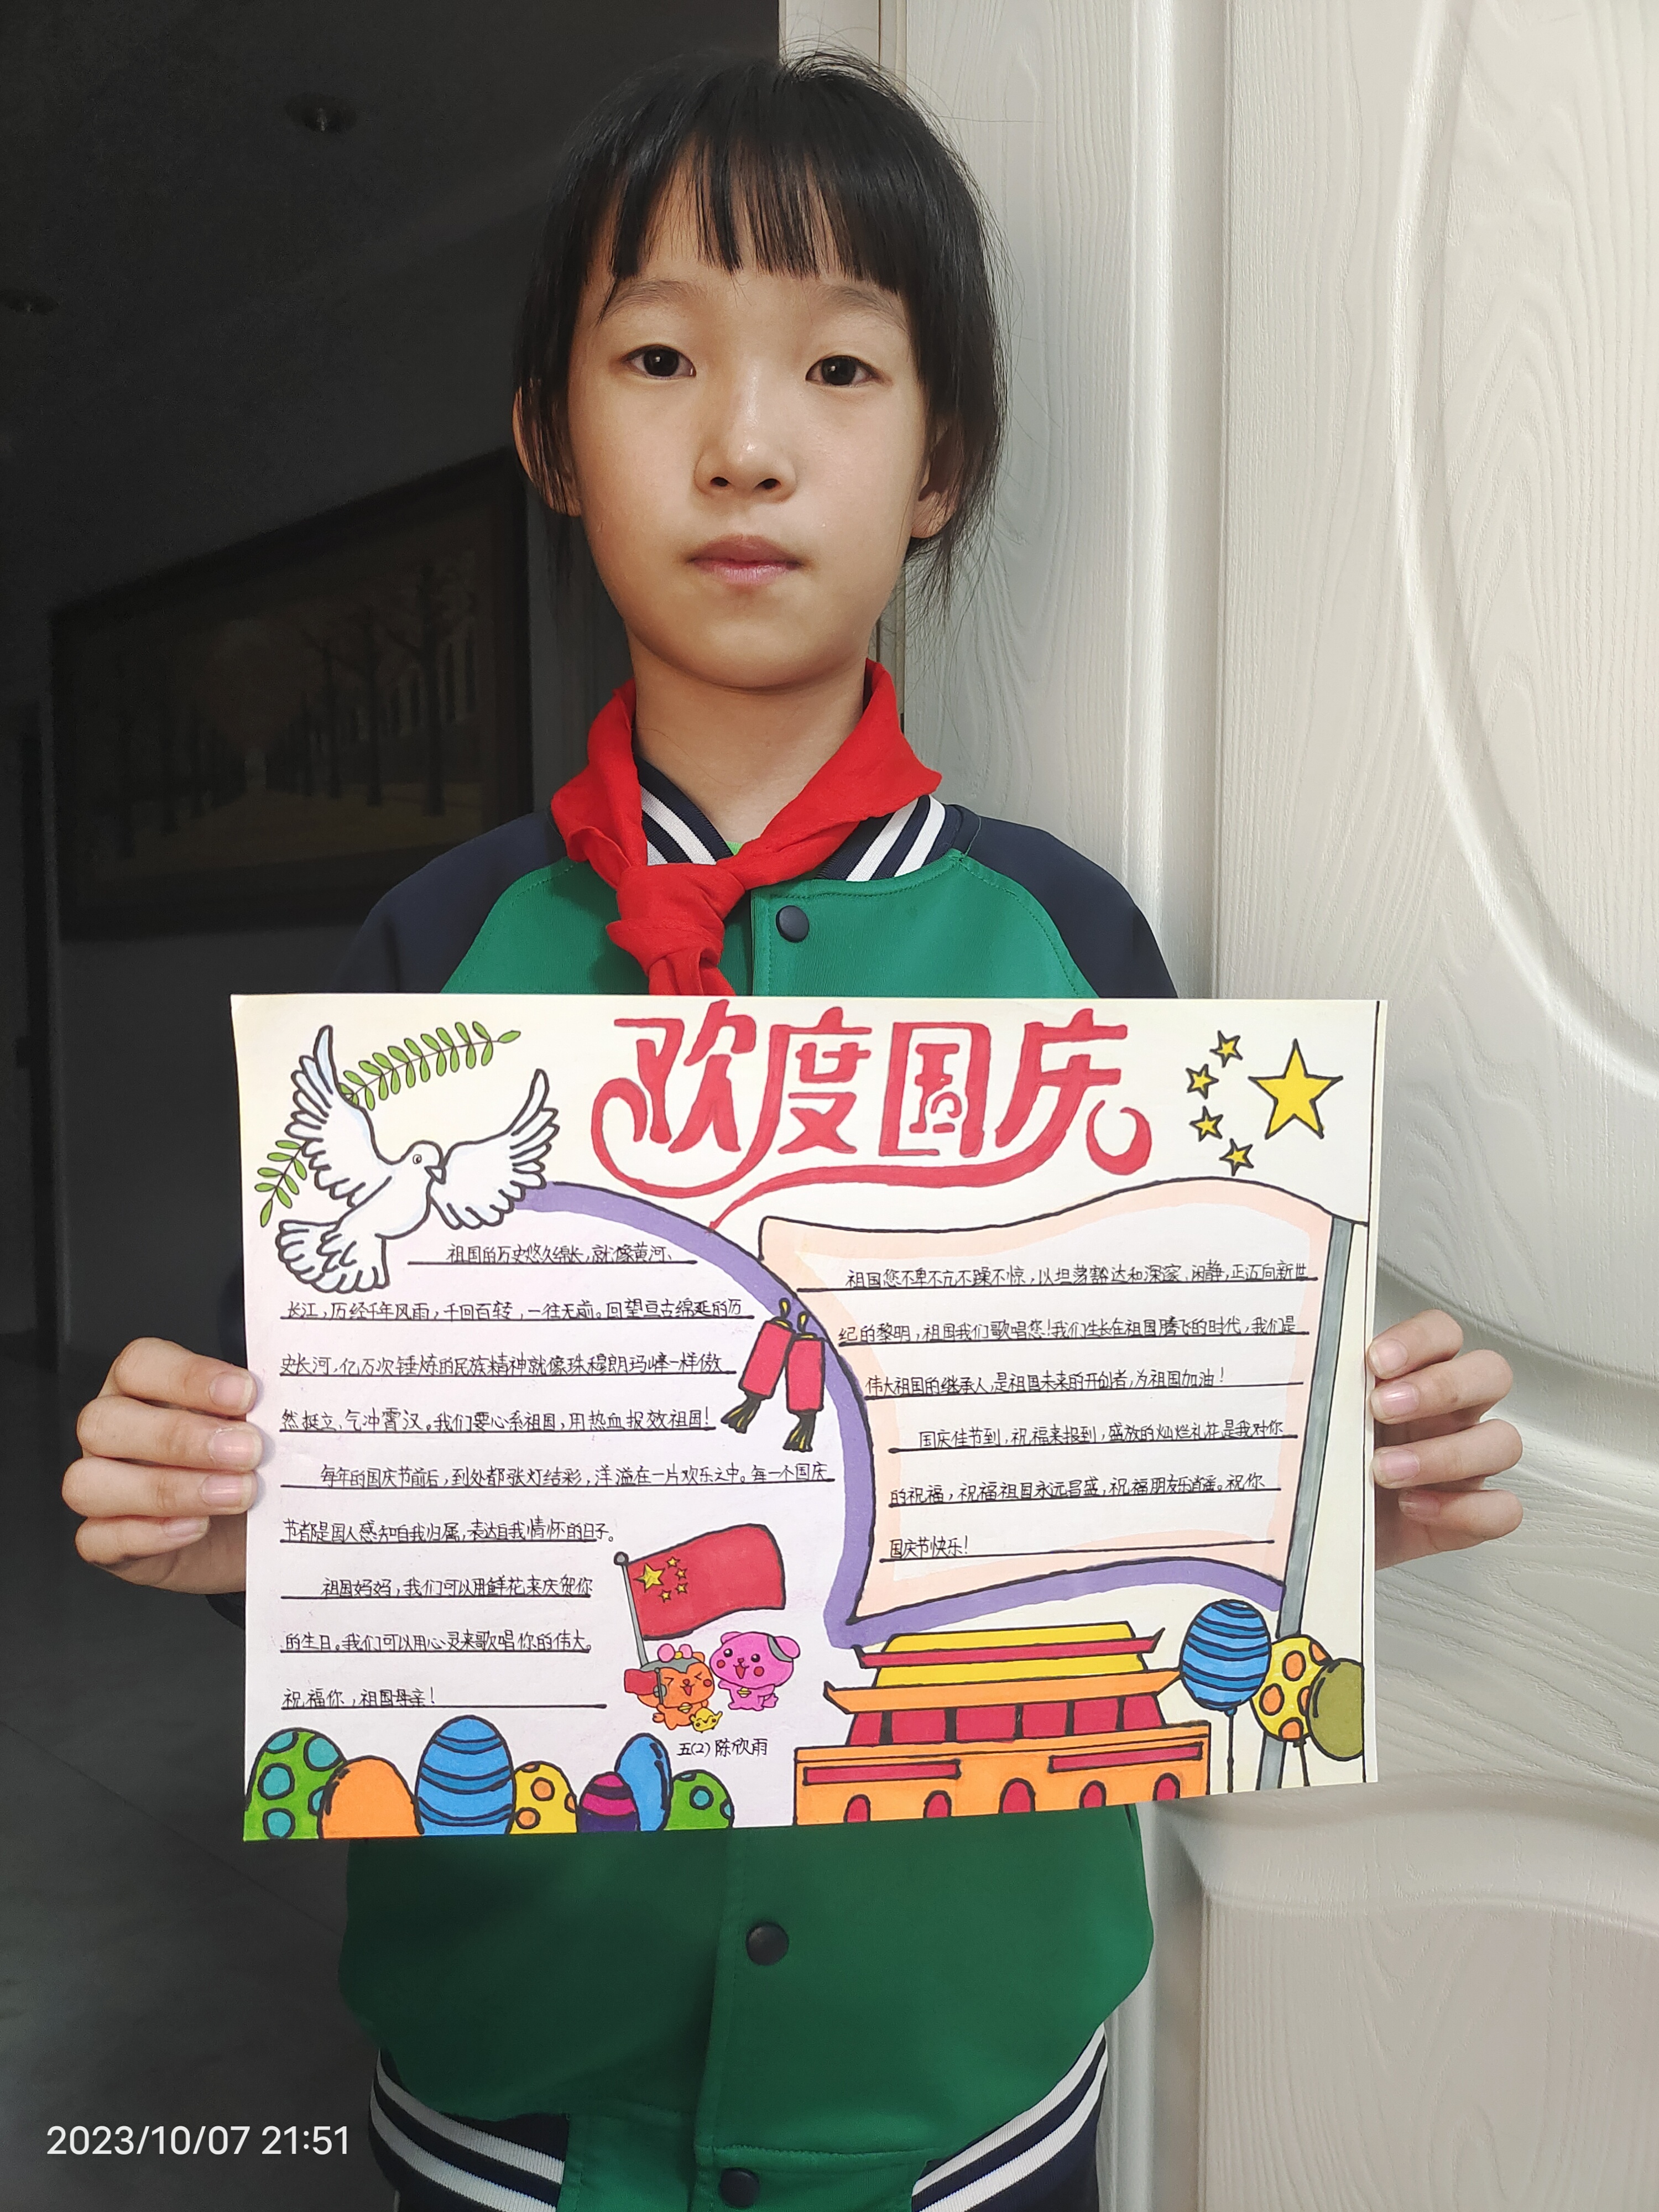 欢度国庆
祖国的历史悠久绵长,就像黄河、
长江,历经千年风雨,千回百转,一往无前。回望亘古绵延的历
史长河,亿万次锤炼的民族精神就像珠穆朗玛峰一样傲
然挺立、气冲霄汉。我们要心系祖国,用热血报效祖国!
每年的国庆节前后,到处都张灯结彩,洋溢在一片欢乐之中。每一个国庆
节都是国人感知自我归属,表达自我情怀的日子。
祖国妈妈,我们可以用鲜花来庆贺你
的生日。我们可以用心灵来歌唱你的伟大。
祝福你,祖国母亲!
五(2) 陈欣雨
祖国您不卑不亢不躁不惊,以坦荡豁达和深邃、闲静,正迈向新世
纪的黎明,祖国我们歌唱您!我们生长在祖国腾飞的时代,我们是
伟大祖国的继承人,是祖国未来的开创者,为祖国加油!
国庆佳节到,祝福来报到,盛放的灿烂礼花是我对你
的祝福,祝福祖国永远昌盛,祝福朋友乐逍遥。祝你
国庆节快乐!
2023/10/07 21:51